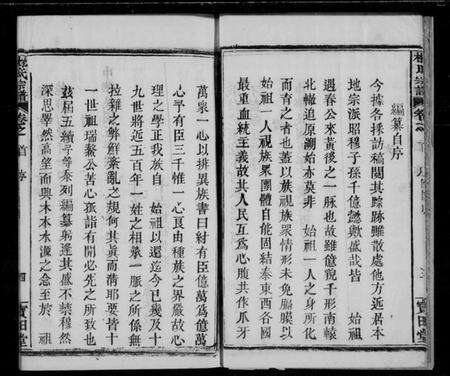 編纂自序
今據各採訪稿閱其踪跡雖散處他方近居本
地宗派昭穆子孫千億懿歟盛哉皆 始祖
遇春公來黃後之一脉也故雖億貌千形南轅
北轍追原溯始亦莫非 始祖一人之身所化
而青之者也蓋以族視族衆情形未免膈膜以
始祖一人視族累團體自能固結泰東西各國
最重血統主義故其人民互為心腹共作爪牙
萬衆一心以排異族書曰紂有臣億萬為億萬
心予有臣三千惟一心良由種族之界嚴故心
理之學正我族自 始祖以還迄今已幾及十
九世將近五百年人一姓之相承一脈之所係無
拉雜之弊鮮紊亂之規何其眞而清耶要皆十
一世祖瑞鰲公苦心孤詣有開必先之所致也
茲屆五續予等忝列編纂躬逢其盛不禁穆然
深思學然高望而興木本水源之念至於 祖
卷之 首 序
四 寶田堂
寶田堂